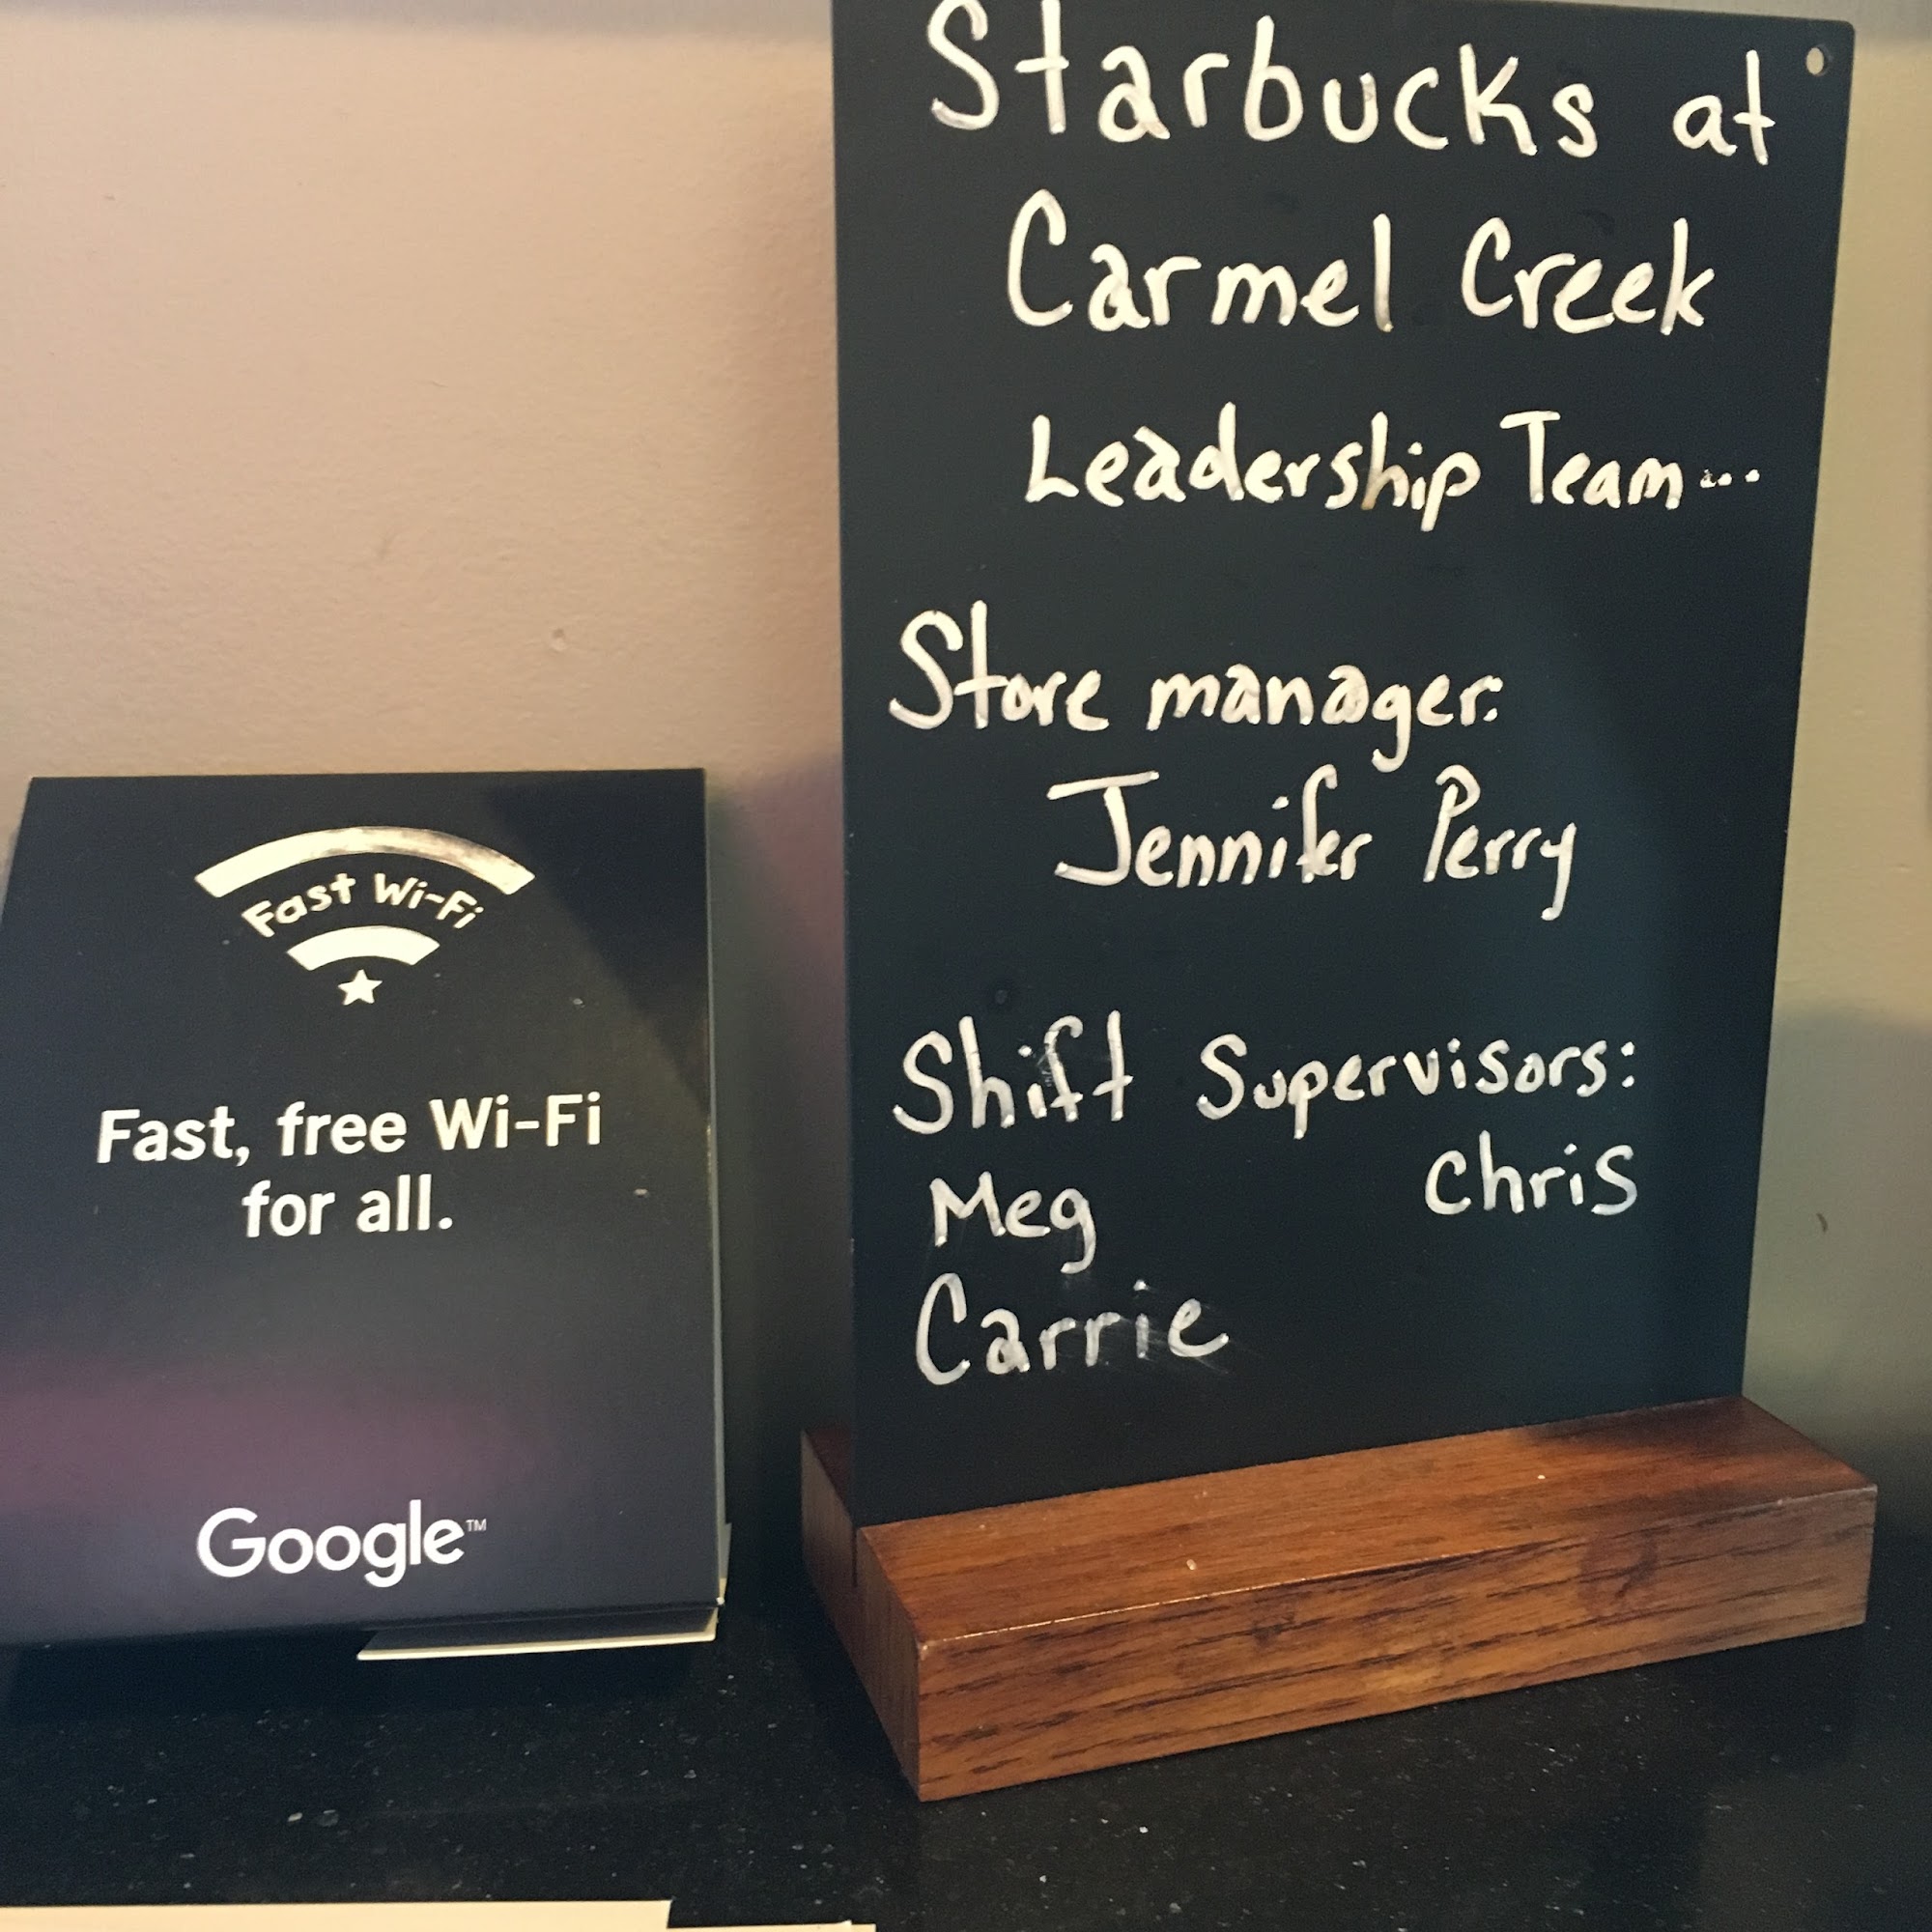 Starbucks at
Carmel Creek
Leadership Team...
Store manager:
Jennifer Perry
Shift Supervisors:
Meg Chris
Carrie
Fast Wi-Fi
Fast, free Wi-Fi
for all.
Google™